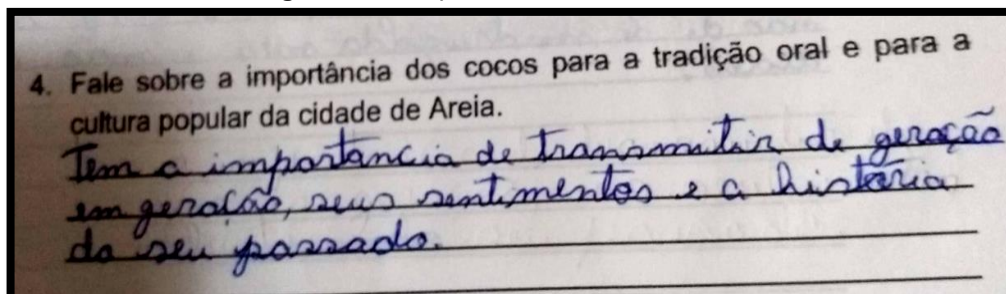 4. Fale sobre a importância dos cocos para a tradição oral e para a
cultura popular da cidade de Areia.
Tem a importância de transmitir de geração
em geração, seus sentimentos e a história
do seu passado.